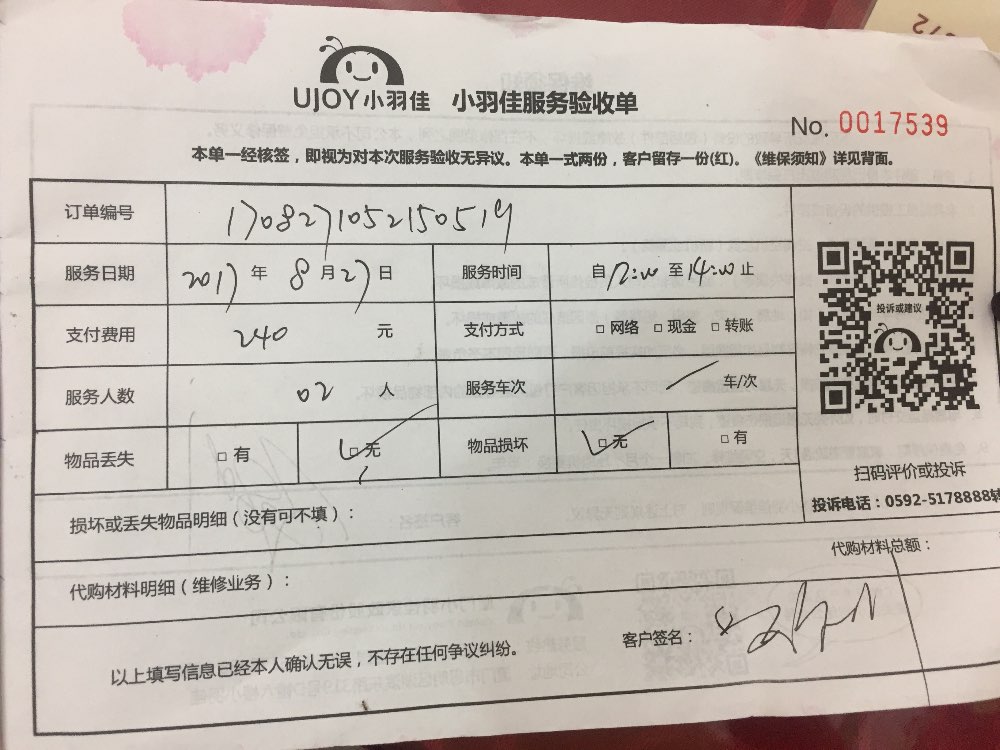 UJOY小羽佳 小羽佳服务验收单
No. 0017539
本单一经核签，即视为对本次服务验收无异议。本单一式两份，客户留存一份(红)。《维保须知》详见背面。
订单编号 1708271052150519
服务日期 2017 年 8 月 27 日 服务时间 自 12:00 至 14:00 止
支付费用 240 元 支付方式 □ 网络 □ 现金 □ 转账
投诉或建议
服务人数 02 人 服务车次 车/次
物品丢失 □ 有 □ 无 物品损坏 □ 无 □ 有
扫码评价或投诉
投诉电话：0592-5178888转
损坏或丢失物品明细（没有可不填）：
代购材料明细（维修业务）： 代购材料总额：
以上填写信息已经本人确认无误，不存在任何争议纠纷。 客户签名：